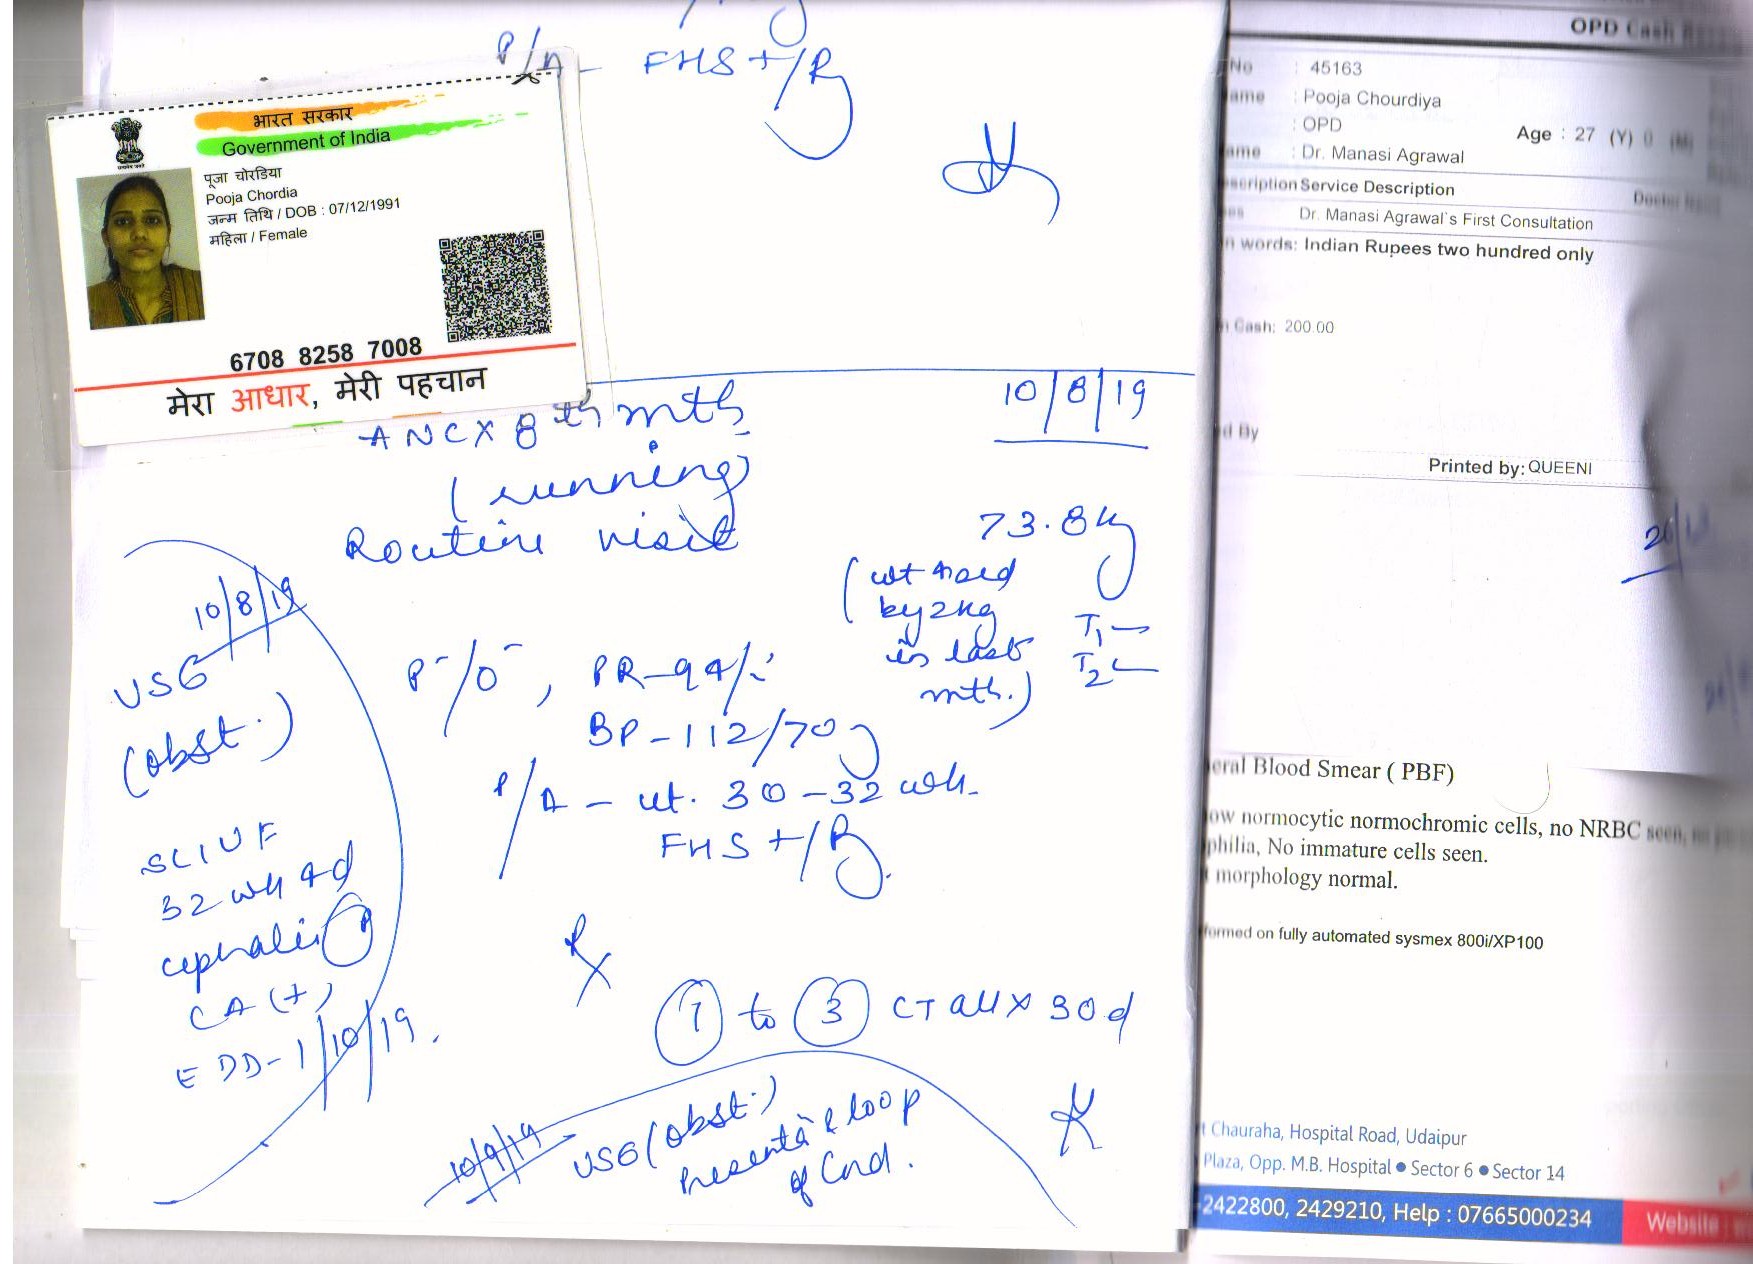 P/A - FHS +/R
भारत सरकार
Government of India
पूजा चोरडिया
Pooja Chordia
जन्म तिथि / DOB : 07/12/1991
महिला / Female
6708 8258 7008
मेरा आधार, मेरी पहचान
10/8/19
ANC X 8th mth
(running)
Routine visit
73.8 kg
(wt
by 2 kg
in last
mth.)
T1 —
T2 —
P-/O-, PR-94/
BP-112/70
P/A - ut. 30-32 wk.
FHS +/R
10/8/19
USG
(obst.)
SLIUF
32 wk 4d
cephalic
CA (+)
EDD-1/10/19.
Rx
1 to 3 CT all X 30d
10/9/19
USG (obst.)
loop
of Cord.
OPD Cash
No : 45163
ame : Pooja Chourdiya
: OPD
Age : 27 (Y) 0 (M)
ame : Dr. Manasi Agrawal
scription Service Description
Dr. Manasi Agrawal`s First Consultation
n words: Indian Rupees two hundred only
Cash: 200.00
d By
Printed by: QUEENI
eral Blood Smear ( PBF)
ow normocytic normochromic cells, no NRBC seen,
philia, No immature cells seen.
morphology normal.
formed on fully automated sysmex 800i/XP100
t Chauraha, Hospital Road, Udaipur
Plaza, Opp. M.B. Hospital ● Sector 6 ● Sector 14
-2422800, 2429210, Help : 07665000234
Website